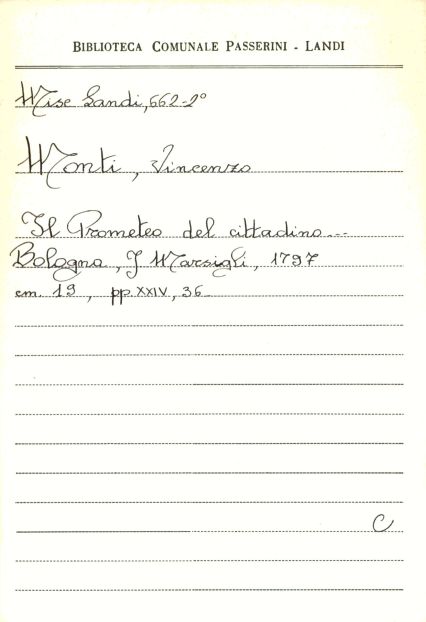 BIBLIOTECA COMUNALE PASSERINI - LANDI
Misc Landi, 662-2°
Monti, Vincenzo
Il Prometeo del cittadino...
Bologna, J Marsigli, 1797
cm. 19, pp. XXIV, 36
C